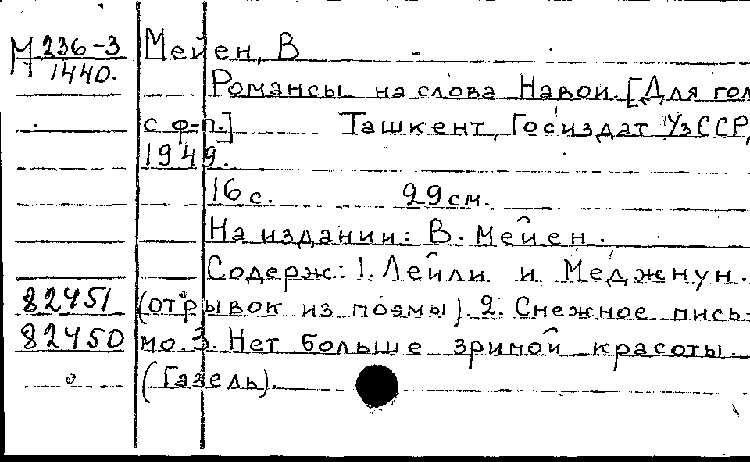 М 236-3 Мейен, В
1440.
Романсы на слова Навои. [Для гол
с ф-п.] Ташкент, Госиздат УзССР,
1949.
16 с. 29 см.
На издании: В. Мейен.
Содерж: 1. Лейли и Меджнун.
82451 (отрывок из поэмы). 2. Снежное пись-
82450 мо. 3. Нет больше зримой красоты
(Газель).